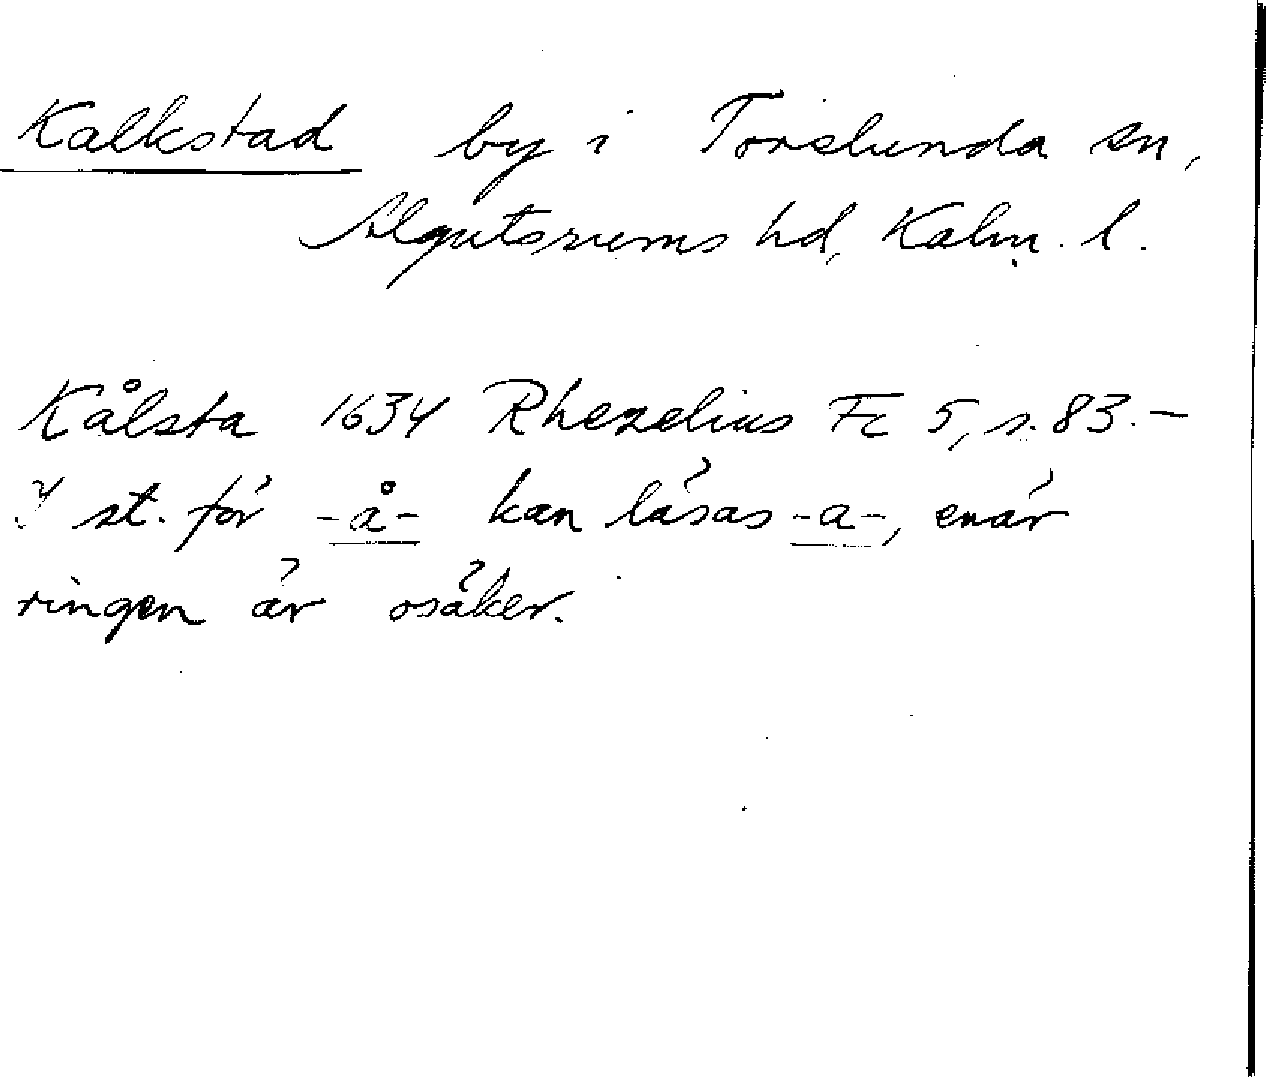 Kalkstad by i Torslunda sn,
Algutsrums hd, Kalm. l.
Kålsta 1634 Rhezelius Fc 5, s. 83. —
I st. för -å- kan läsas -a-, enär
ringen är osäker.